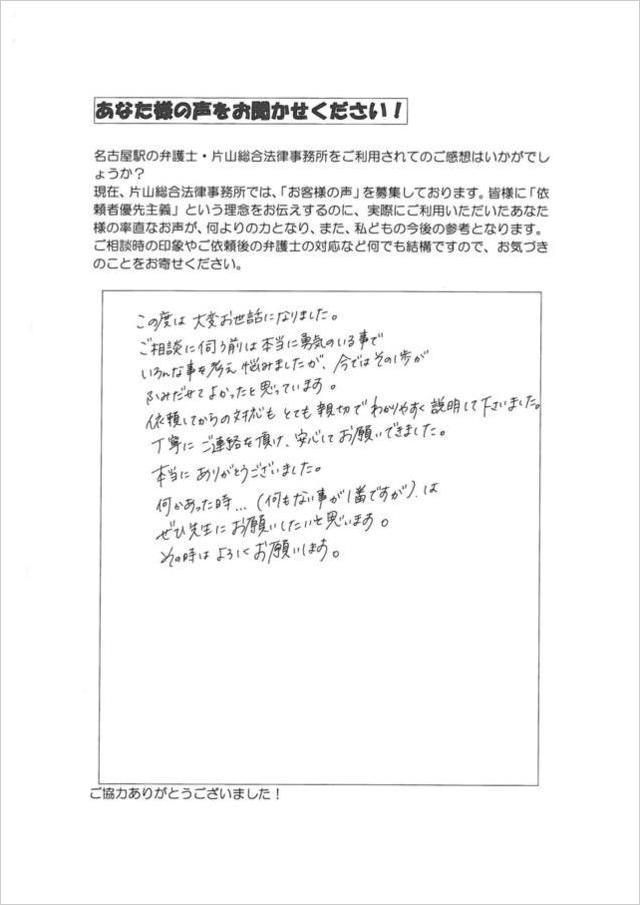 あなた様の声をお聞かせください！
名古屋駅の弁護士・片山総合法律事務所をご利用されてのご感想はいかがでし
ょうか？
現在、片山総合法律事務所では、「お客様の声」を募集しております。皆様に「依
頼者優先主義」という理念をお伝えするのに、実際にご利用いただいたあなた
様の率直なお声が、何よりの力となり、また、私どもの今後の参考となります。
ご相談時の印象やご依頼後の弁護士の対応など何でも結構ですので、お気づき
のことをお寄せください。
この度は大変お世話になりました。
ご相談に伺う前は本当に勇気のいる事で
いろんな事を考え悩みましたが、今ではその1歩が
ふみだせてよかったと思っています。
依頼してからの対応もとても親切でわかりやすく説明して下さいました。
丁寧にご連絡を頂け、安心してお願いできました。
本当にありがとうございました。
何かあった時...(何もない事が1番ですが)は
ぜひ先生にお願いしたいと思います。
その時はよろしくお願いします。
ご協力ありがとうございました！